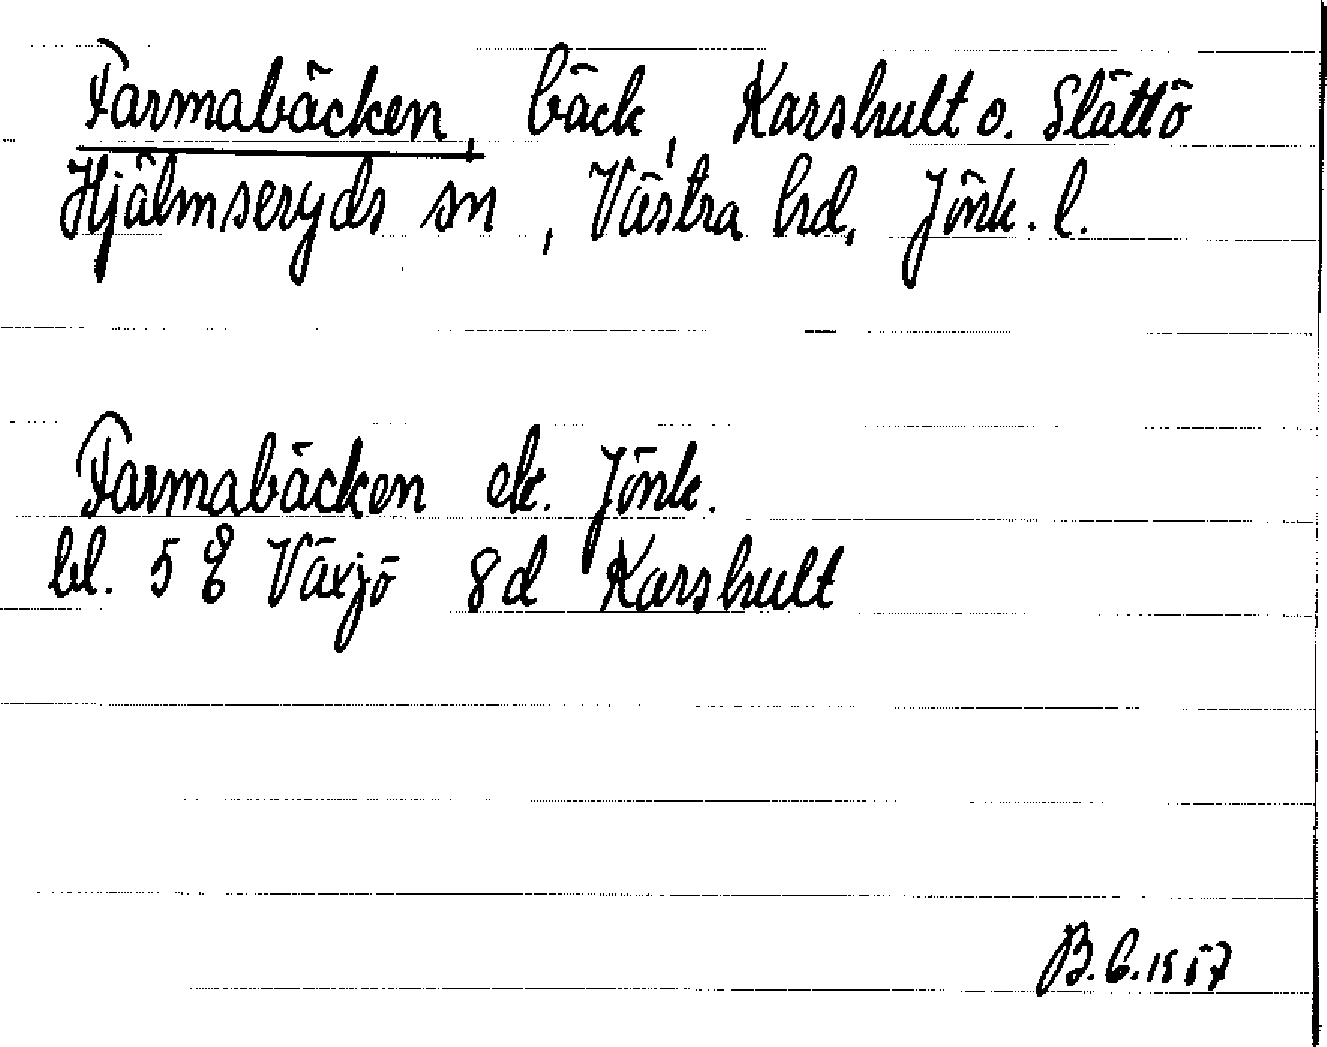 Farmabäcken, bäck, Karshult o. Slättö
Hjälmseryds sn, Västra hrd, Jönk. l.
Farmabäcken ek. Jönk.
bl. 5 E Växjö 8d Karshult
B.C. 1957